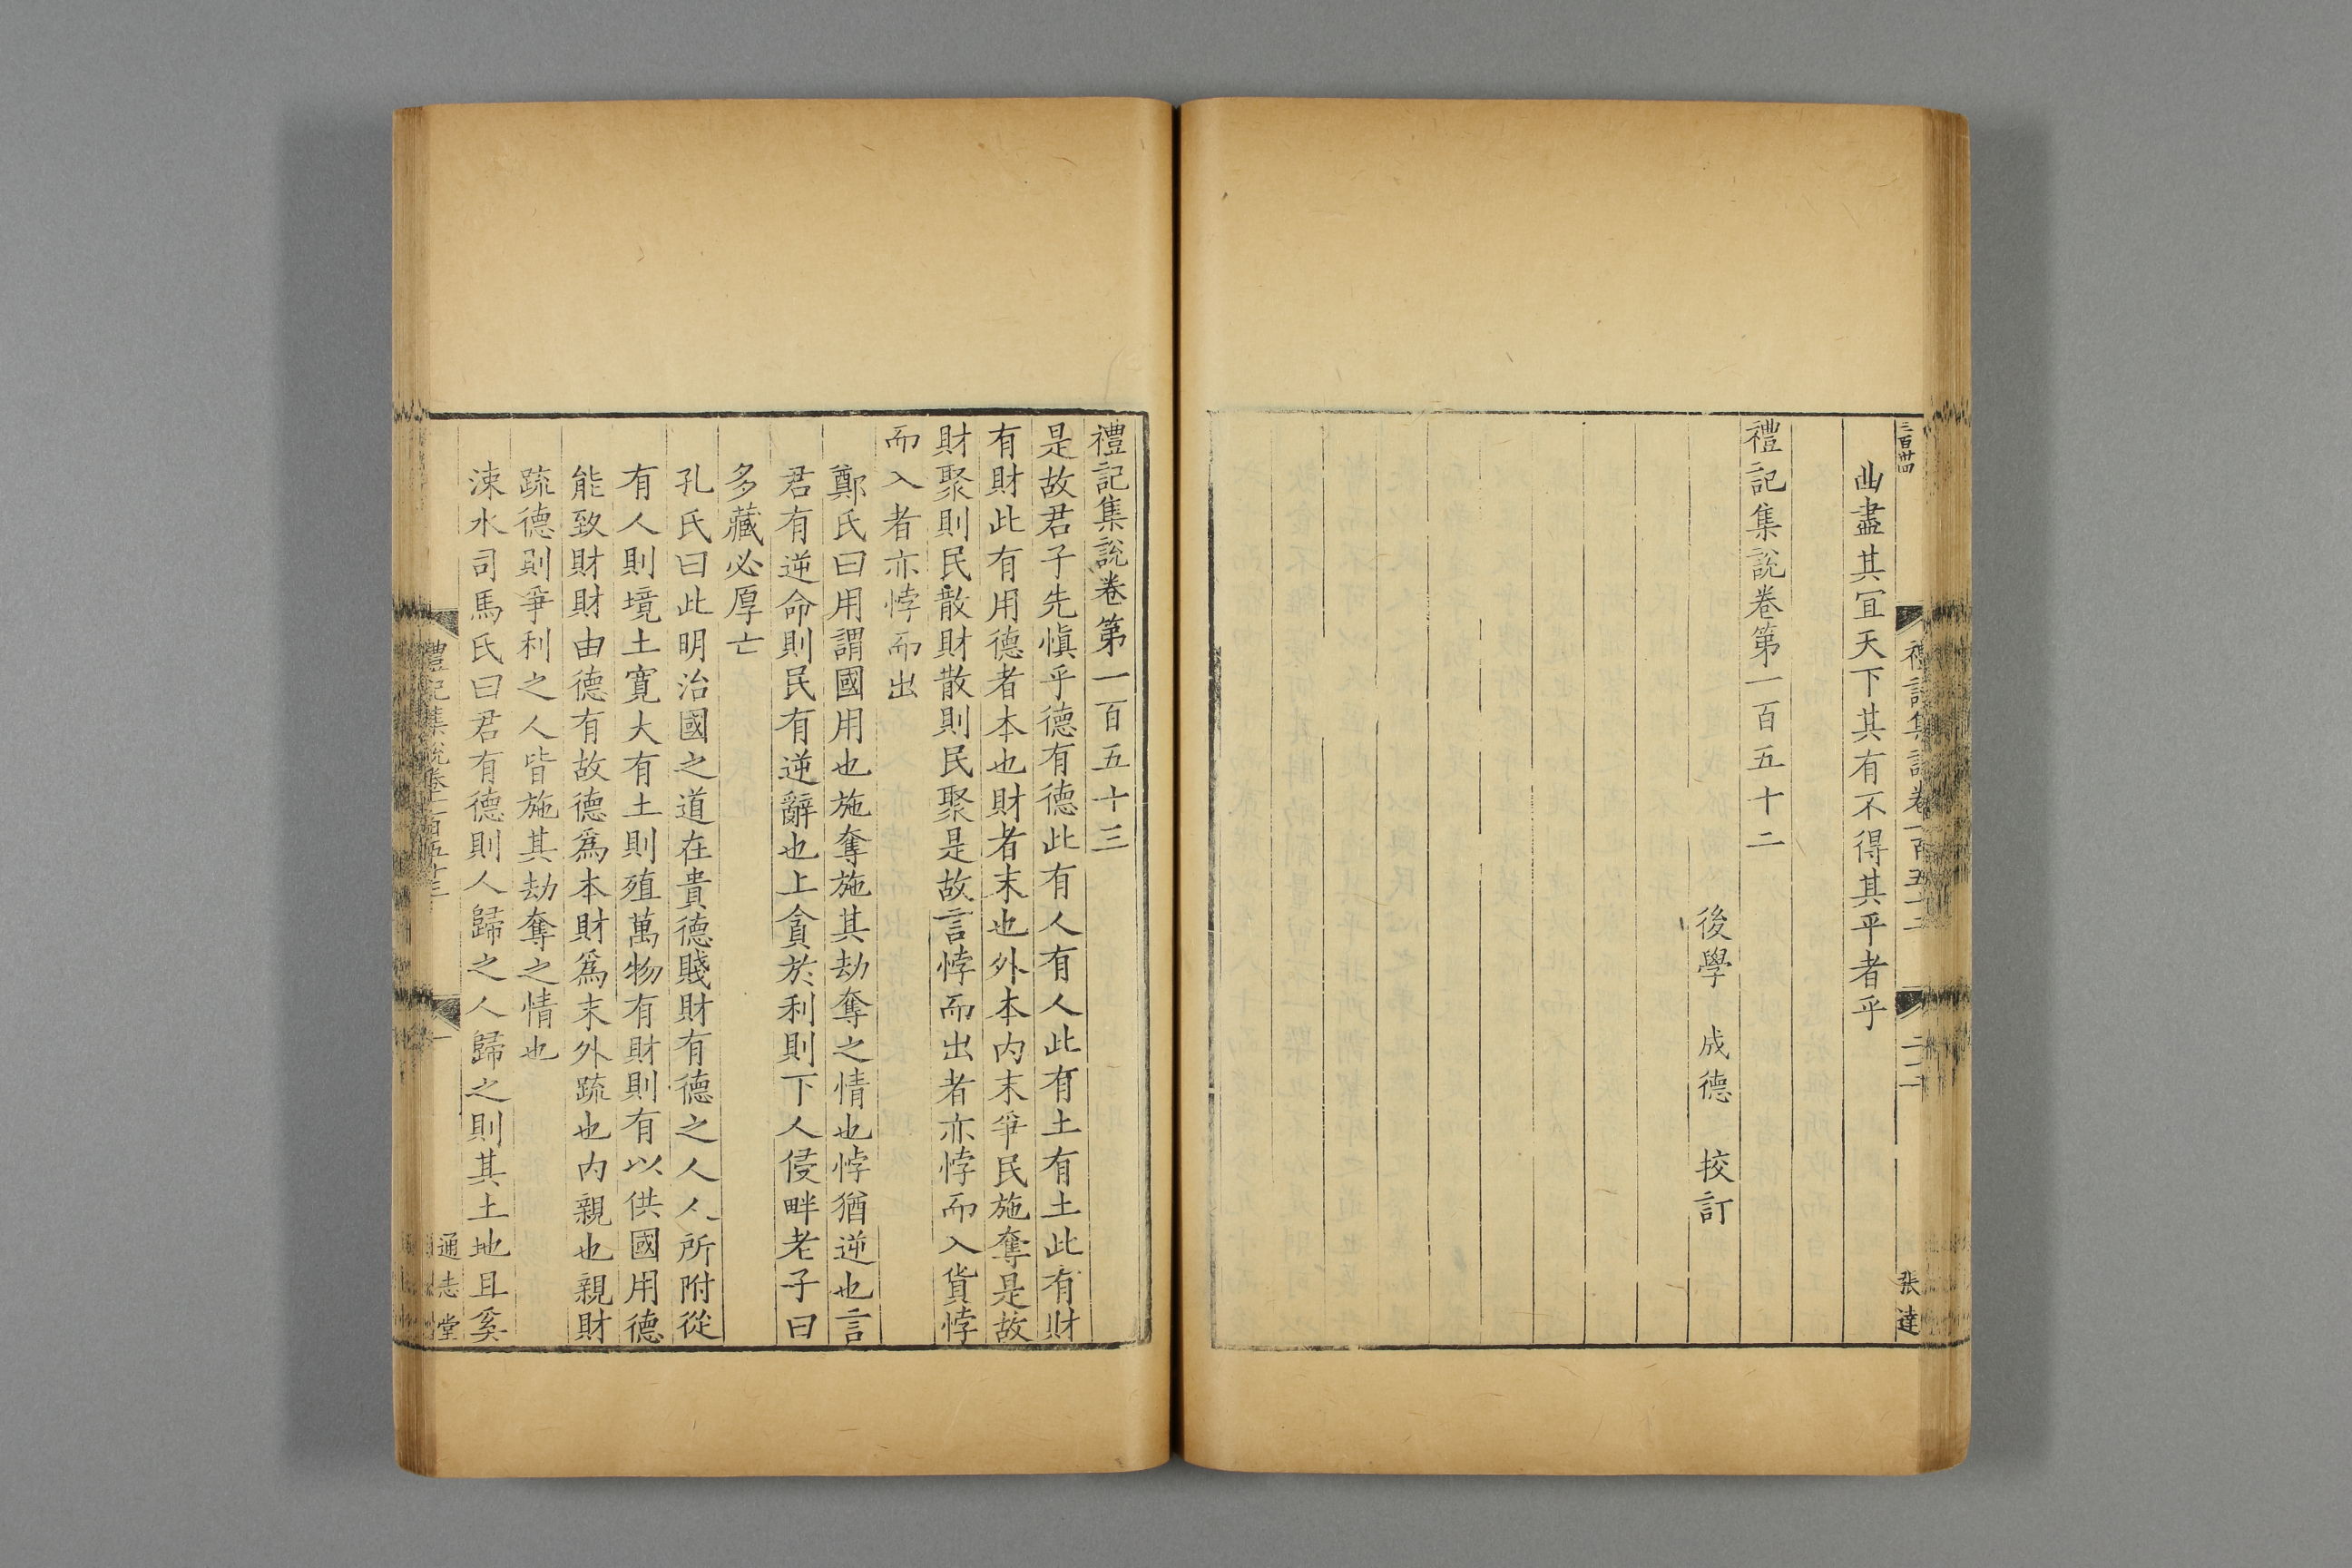 三百卌
禮記集說卷一百五十二
二十一
張達
曲盡其宜天下其有不得其平者乎
禮記集說卷第一百五十二
後學 成德 挍訂
禮記集說卷第一百五十三
是故君子先慎乎德有德此有人有人此有土有土此有財
有財此有用德者本也財者末也外本内末爭民施奪是故
財聚則民散財散則民聚是故言悖而出者亦悖而入貨悖
而入者亦悖而出
鄭氏曰用謂國用也施奪施其劫奪之情也悖猶逆也言
君有逆命則民有逆辭也上貪於利則下人侵畔老子曰
多藏必厚亡
孔氏曰此明治國之道在貴德賤財有德之人人所附從
有人則境土寬大有土則殖萬物有財則有以供國用德
能致財財由德有故德爲本財爲末外疏也内親也親財
疏德則爭利之人皆施其劫奪之情也
涑水司馬氏曰君有德則人歸之人歸之則其土地且奚
禮記集說卷一百五十三
一
通志堂